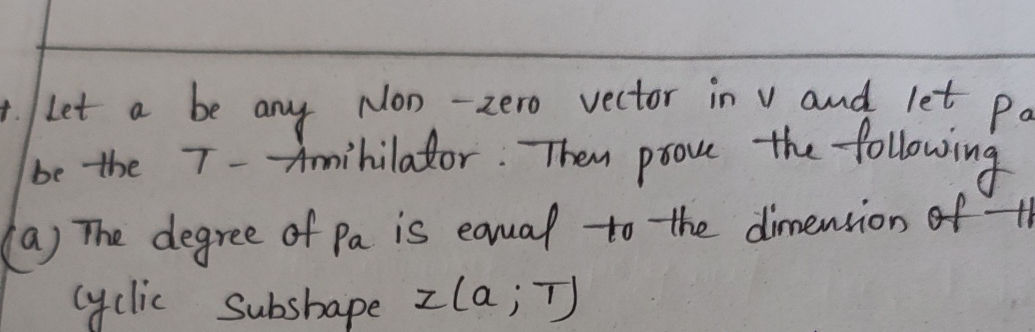 1. Let a be any Non-zero vector in v and let pa
be the T-Annihilator. Then prove the following
(a) The degree of pa is equal to the dimension of th
cyclic Subshape z(a; T)